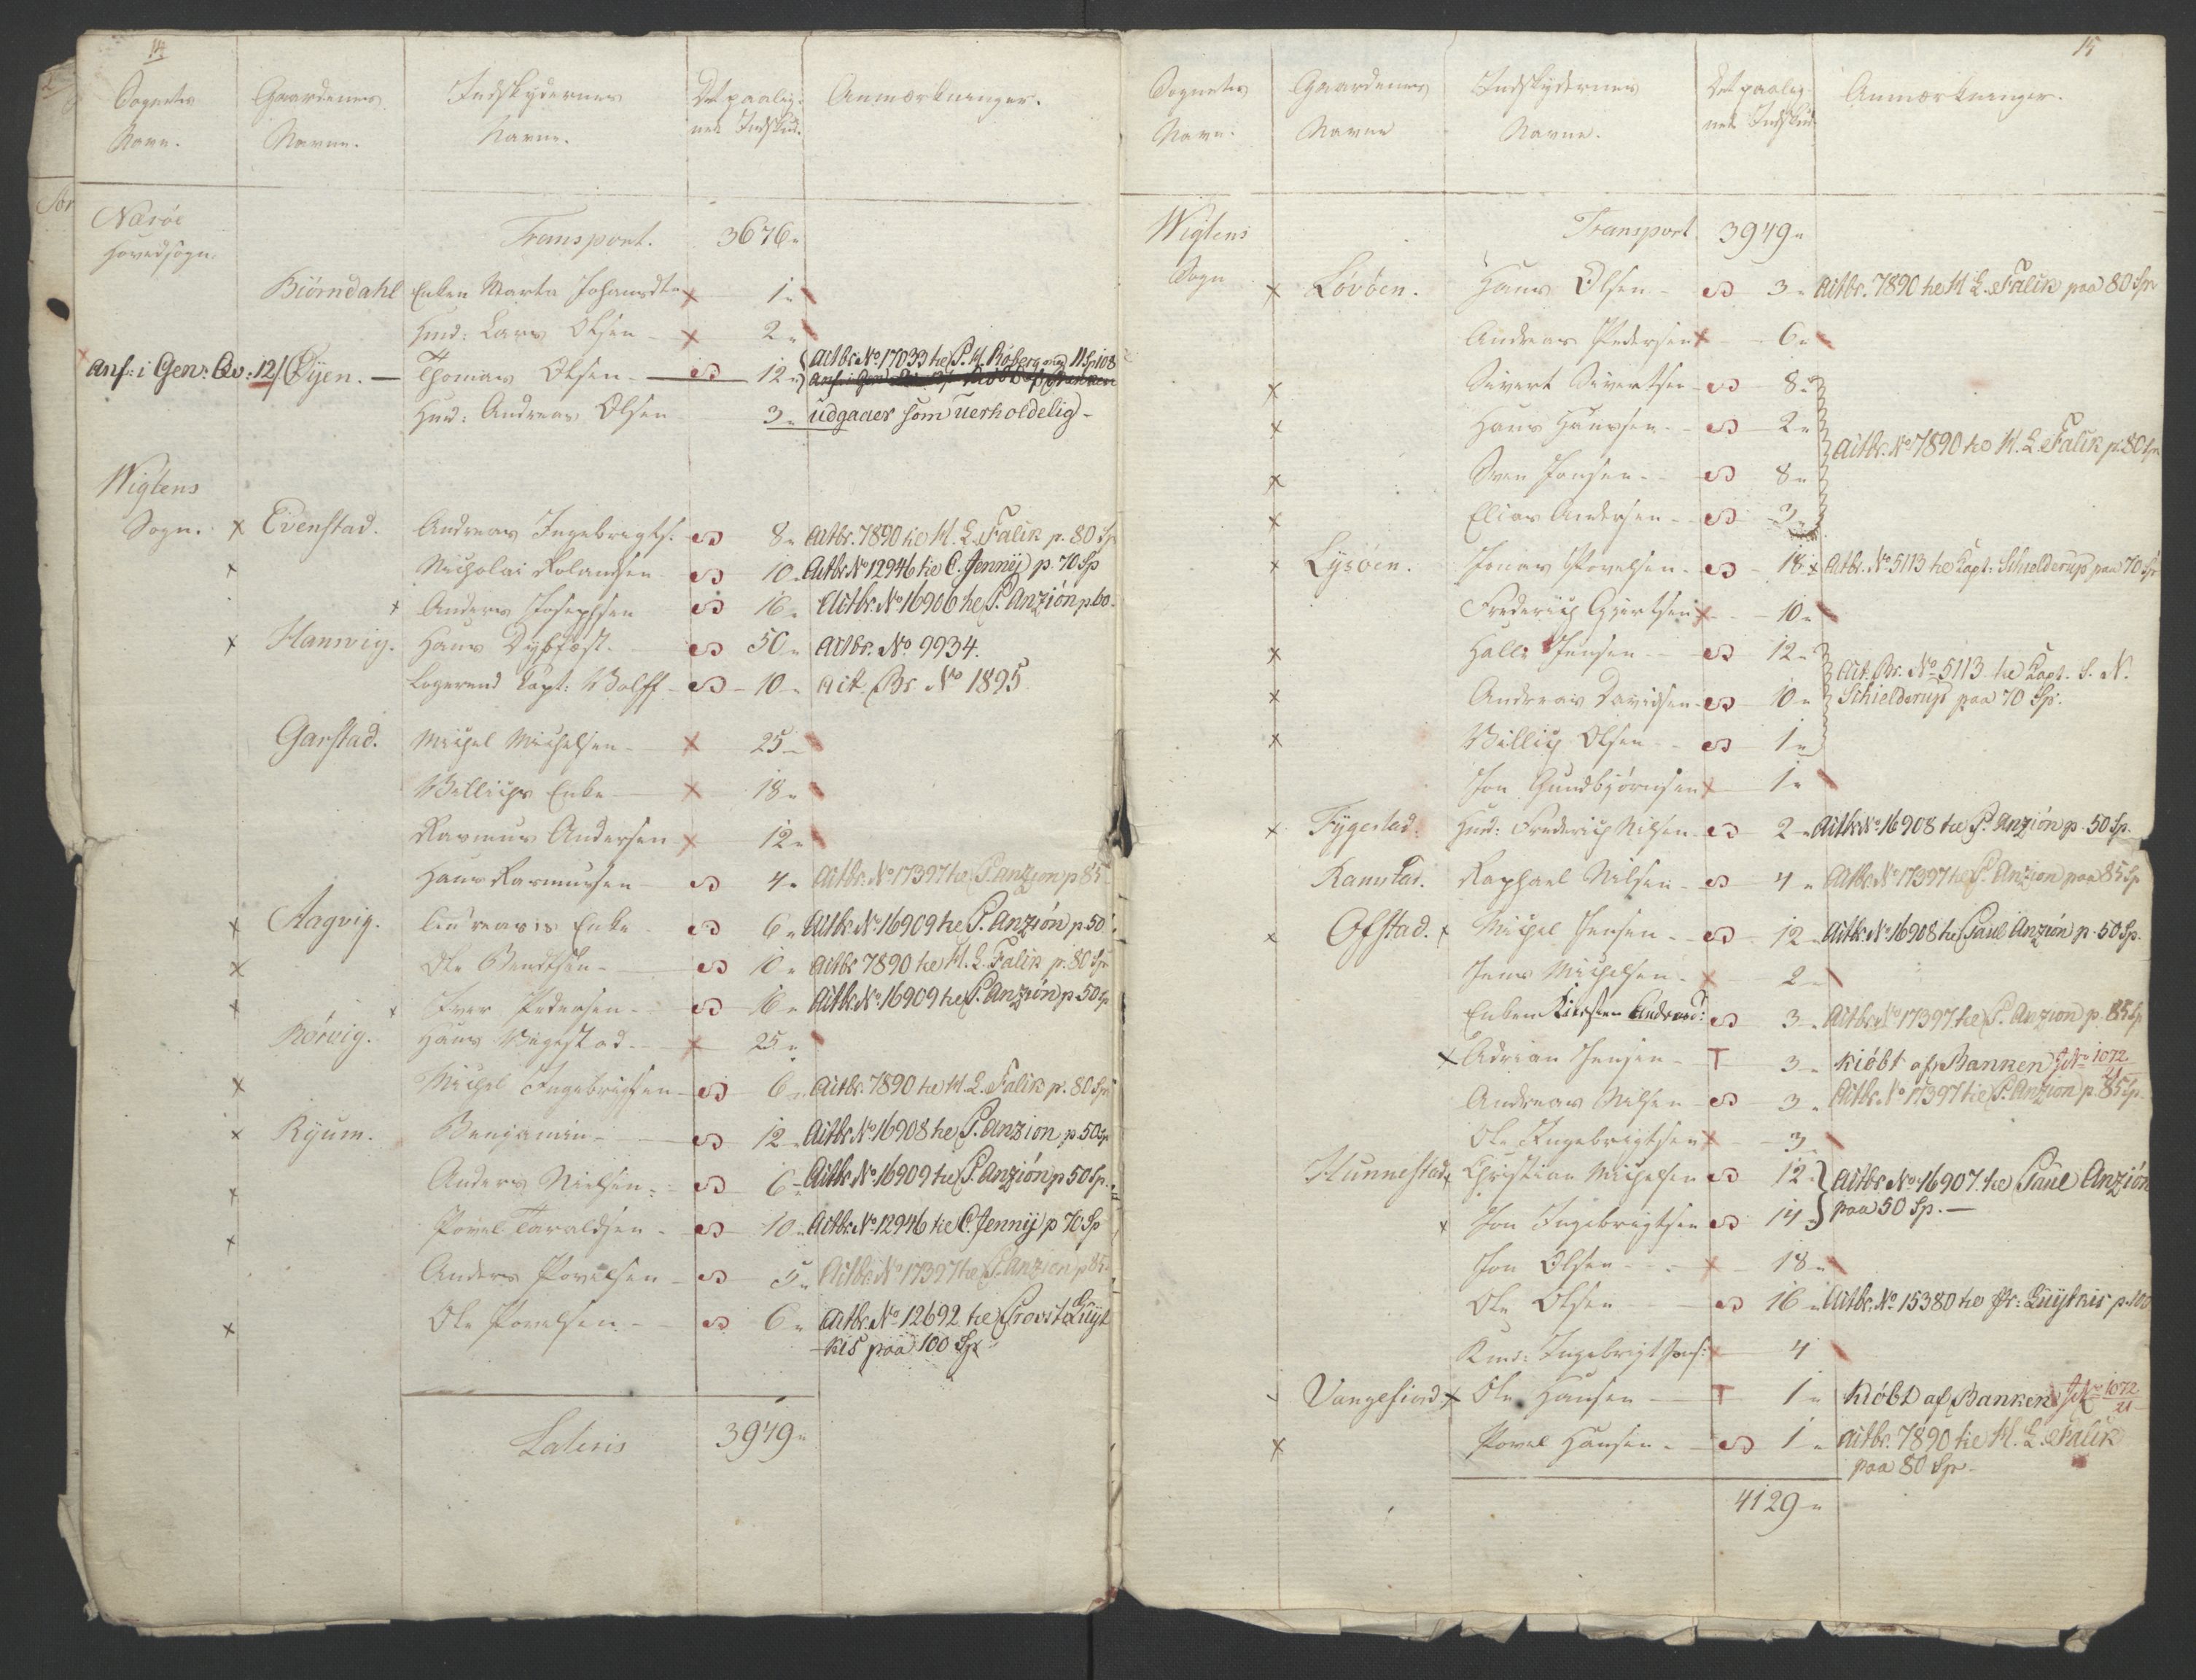 14
Sognets Navn. Gaardenes Navne. Indskydernes Navne. Det paalignede Indskud. Anmærkninger.
Nærøe Hovedsogn. Transport. 3676 "
Biörndahl Enken Marta Johansdtr x 1 "
Huusm: Lars Olsen - x 2 "
x Anf: i Gen: Qv: 12/ Öyen. — Thomas Olsen. 12 " Actbr. No 17033 til P. H. Röberg paa 11 Sp 108
Huusm: Andreas Olsen 3 " udgaaer som uerholdelig -
Wigtens
Sogn. x Evenstad. Andreas Ingebrigts. 8 " Actbr. 7890 til H. L. Falck p. 80 Sp
x Nicholai Rolandsen 10 " Actbr No 12946 til C. Jennÿ p. 70 Sp
x Anders Josephsen 16 " Actbr. No 16906 til P. Anzión p 60 -
x Hansvig. Hans Dybfest. 50 " Actbr. No 9934.
Logerend Capt: Wolff - 10 " Act. Br. No 1895
Garstad. Michel Michelsen - x 25 "
Willichs Enke x 18 "
Rasmus Andersen x 12 "
Hans Rasmusen 4 " Actbr. No 17397 til P. Anzion p 85
x Aagvig. Andreasis Enke 6 " Actbr. No 16909 til P. Anzión p. 50
x Ole Bendtsen - 10 " Actbr 7890 til H. L. Falck p. 80 Sp
x Iver Pedersen - 16 " Actbr. No 16909 til P. Anzión p 50 Sp
Rörvig. Hans Vigestad - x 25 "
x Michel Ingebrigtsen 6 " Actbr. 7890 til H. L. Falck p. 80 Sp
x Ryum. Benjamin - 12 " Actbr. No 16908 til P. Anzion p. 50 Sp
x Anders Nielsen 6 " Actbr. No 16909 til P. Anzión p 50 Sp.
x Povel Taraldsen - 10 " Actbr. No 12946 til C. Jennij p 70 Sp
Anders Povelsen - 5 " Actbr. No 17397 til P. Anzion p 85.
x Ole Povelsen - 6 " Actbr. No 12692 til Provst Luÿt
-kis paa 100 Sp
Lateris 3949 "
15
Sognets Navn. Gaardenes Navne Indskydernes Navne. Det paalignede Indskud Anmærkninger.
Wigtens Sogn Transport 3949 "
x Lövöen. Hans Olsen - 3 " Actbr. 7890 til H. L. Falck paa 80 Sp
Andreas Pedersen x 6 "
x Sivert Sivertsen 8 "
x Hans Hansen - 2 " Actbr. No 7890 til H. L. Falck p. 80 Sp
x Sven Jonsen - 8 "
x Elias Andersen - 3 "
x Lysöen. Jonas Povelsen - 18 " Actbr. No 5113 til Capt: Schielderup paa 70 Sp
Frederich Gjertsen x 10 "
x Halle Jensen - 12 " Act. Br. No 5113 til Capt. S. N.
x Andreas Davidsen 10 " Schielderup paa 70 Sp.
x Willich Olsen - 1 "
Jon Gundbjörnsen x 1 "
x Fygestad. Huusm: Frederich Nilsen 2 " Actbr No 16908 til P. Anzión p. 50 Sp.
Ramstad. Raphael Nilsen - 4 " Actbr. No 17397 til P. Anzion paa 85 Sp
x Ofstad. x Michel Jensen - 12 Actbr No 16908 til Paul Anzión p. 50 Sp.
Jens Michelsen - x 2 "
Enken Kirsten Andreasd: 3 " Actbr. No 17397 til P. Anzion p. 85 Sp
x Adrian Jensen - T 3 " kiöbt af Banken J No 1072/21
Andreas Nilsen 3 " Actbr. No 17397 til P. Anzion p. 85 Sp.
Ole Ingebrigtsen x 3 "
Hunnestad x Christian Michelsen 12 " Actbr No 16907. til Paul Anzión
x Jon Ingebrigtsen 14 paa 50 Sp. —
Jon Olsen - - x 18 "
Ole Olsen 16 " Actbr. No 15380 til Pr: Luÿtkis p. 100
Huusm: Ingebrigt Jons: x 4
x Vangefiord. x Ole Hansen T 1 " Kiöbt af Banken J No 1072/21
x Povel Hansen - 1 " Actbr. 7890 til H. L. Falck
paa 80 Sp -
4129 "